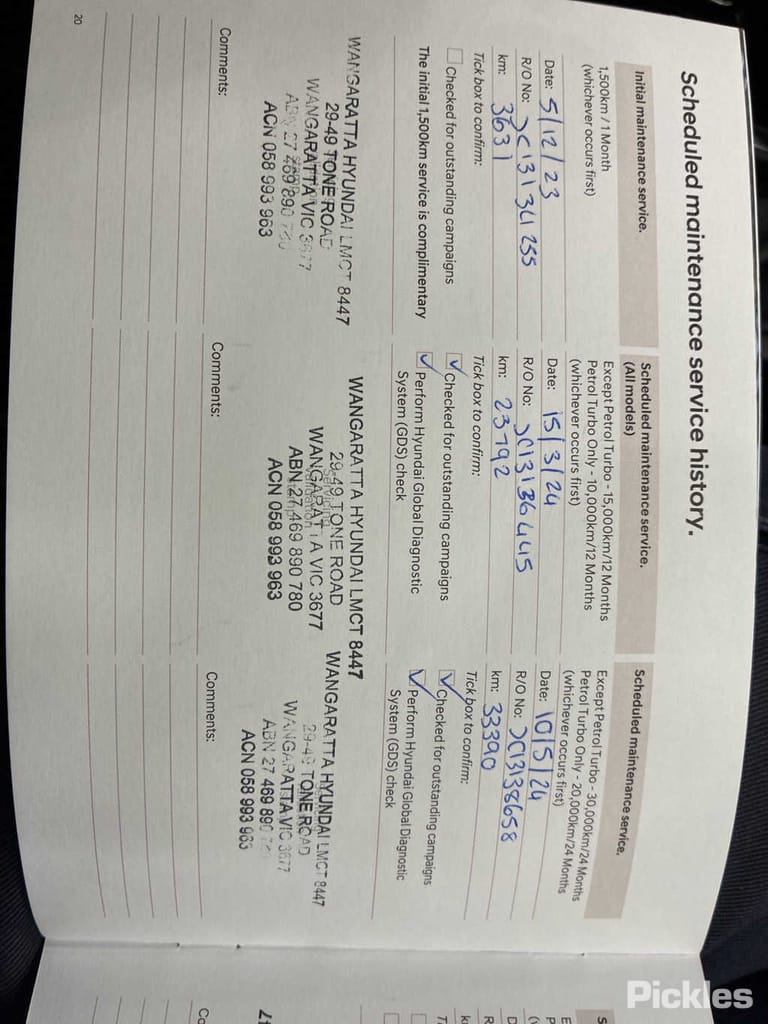 Scheduled maintenance service history.
Initial maintenance service.
1,500km / 1 Month
(whichever occurs first)
Date: 5/12/23
R/O No: JC13134255
km: 3631
Tick box to confirm:
Checked for outstanding campaigns
The initial 1,500km service is complimentary
WANGARATTA HYUNDAI LMCT 8447
29-49 TONE ROAD
WANGARATTA VIC 3677
ABN 27 469 890 780
ACN 058 993 963
Comments:
Scheduled maintenance service.
(All models)
Except Petrol Turbo - 15,000km/12 Months
Petrol Turbo Only - 10,000km/12 Months
(whichever occurs first)
Date: 15/3/24
R/O No: JC13136445
km: 23792
Tick box to confirm:
Checked for outstanding campaigns
Perform Hyundai Global Diagnostic
System (GDS) check
WANGARATTA HYUNDAI LMCT 8447
29-49 TONE ROAD
WANGARATTA VIC 3677
ABN 27 469 890 780
ACN 058 993 963
Comments:
Scheduled maintenance service.
Except Petrol Turbo - 30,000km/24 Months
Petrol Turbo Only - 20,000km/24 Months
(whichever occurs first)
Date: 10/5/24
R/O No: JC13138658
km: 33390
Tick box to confirm:
Checked for outstanding campaigns
Perform Hyundai Global Diagnostic
System (GDS) check
WANGARATTA HYUNDAI LMCT 8447
29-49 TONE ROAD
WANGARATTA VIC 3677
ABN 27 469 890
ACN 058 993 963
Comments:
20
Pickles